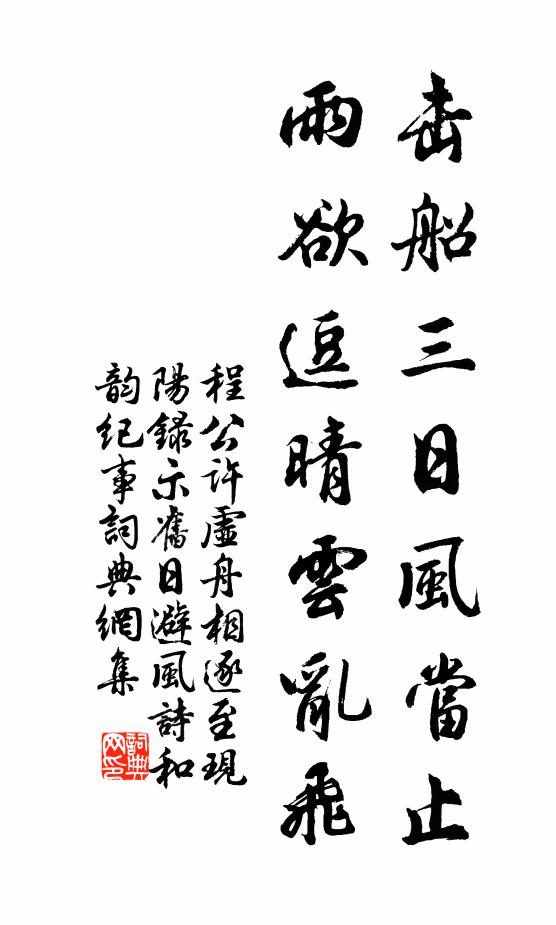 击船三日風當止
雨欲逗晴雲亂飛
程公許虛舟相逐至現
陽錄示舊日避風詩和
韵紀事詞典網集
詞典
网印